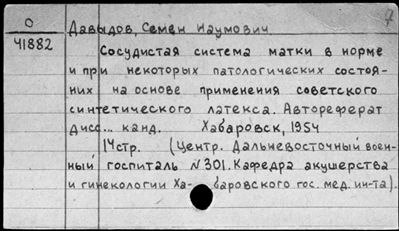 О
41882
7
Давыдов, Семен Наумович
Сосудистая система матки в норме
и при некоторых патологических состоя-
ниях на основе применения советского
синтетического латекса. Автореферат
дисс... канд. Хабаровск, 1954
14стр. (Центр. Дальневосточный воен-
ный госпиталь №301. Кафедра акушерства
и гинекологии Ха- баровского гос. мед. ин-та).